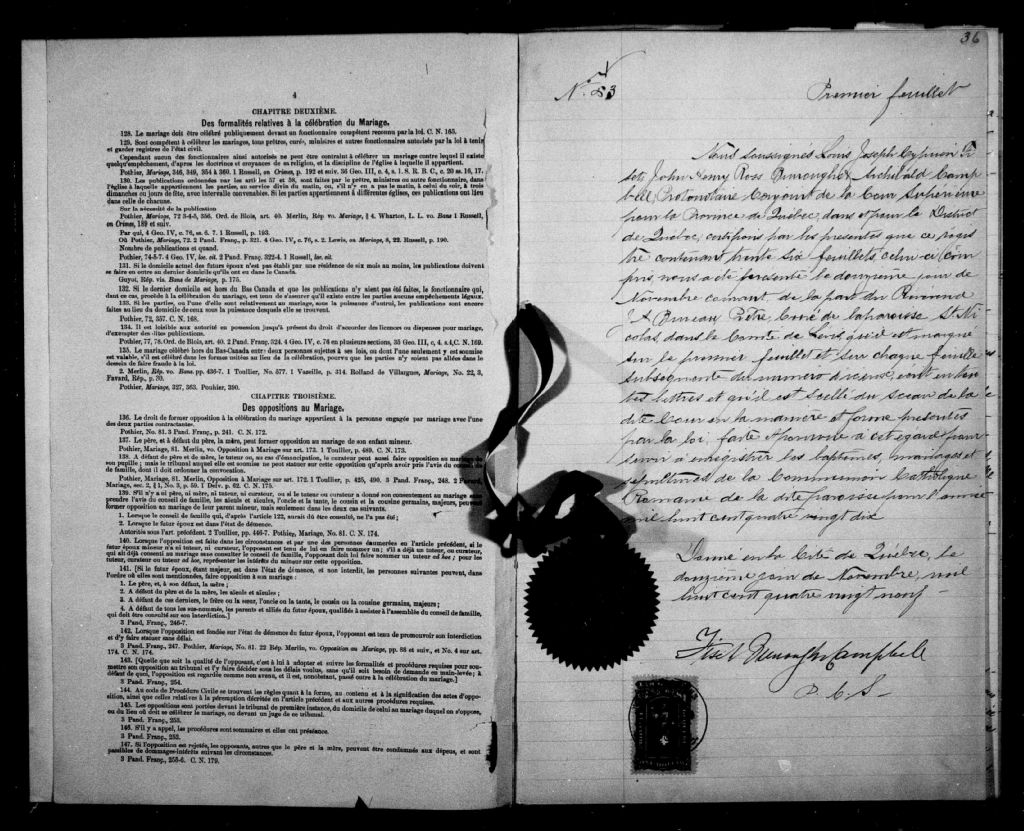 4
CHAPITRE DEUXIÈME.
Des formalités relatives à la célébration du Mariage.
128. Le mariage doit être célébré publiquement devant un fonctionnaire compétent reconnu par la loi. C. N. 165.
129. Sont compétents à célébrer les mariages, tous prêtres, curés, ministres et autres fonctionnaires autorisés par la loi à tenir
et garder registres de l'état civil.
Cependant aucun des fonctionnaires ainsi autorisés ne peut être contraint à célébrer un mariage contre lequel il existe
quelqu'empêchement, d'après les doctrines et croyances de sa religion, et la discipline de l'église à laquelle il appartient.
Pothier, Mariage, 346, 349, 354 & 360. 1 Russell, on Crimes, p. 192 et suiv. 36 Geo. III, c. 4, s. 1. S. R. B. C., c. 20 ss. 16, 17.
130. Les publications ordonnées par les arts les 57 et 58, sont faites par le prêtre, ministre ou autre fonctionnaire, dans
l'église à laquelle appartiennent les parties, au service divin du matin, ou, s'il n'y en a pas le matin, à celui du soir, à trois
dimanches ou jours de fête, avec intervalle convenable. Si les parties appartiennent à différentes églises, ces publications ont lieu
dans celle de chacune.
Sur la nécessité de la publication
Pothier, Mariage, 72 3-4-5, 356. Ord. de Blois, art. 40. Merlin, Rép. vo. Mariage, § 4. Wharton, L. L. vo. Bans 1 Russell,
on Crimes, 189 et suiv.
Par qui, 4 Geo. IV, c. 76, ss. 6. 7. 1 Russell, p. 193.
Où Pothier, Mariage, 72. 2 Pand. Franç., p. 321. 4 Geo. IV, c. 76, s. 2. Lewis, on Mariage, 8, 22. Russell, p. 190.
Nombre de publications et quand.
Pothier, 74-5-7. 4 Geo. IV, loc. cit. 2 Pand. Franç. 322-4. 1 Russell, loc. cit.
131. Si le domicile actuel des futurs époux n'est pas établi par une résidence de six mois au moins, les publications doivent
se faire en outre au dernier domicile qu'ils ont eu dans le Canada.
Guyot, Rép. vis. Bans de Mariage, p. 175.
132. Si le dernier domicile est hors du Bas-Canada et que les publications n'y aient pas été faites, le fonctionnaire qui,
dans ce cas, procède à la célébration du mariage, est tenu de s'assurer qu'il existe entre les parties aucuns empêchements légaux.
133. Si les parties, ou l'une d'elles sont relativement au mariage, sous la puissance d'autrui, les publications sont encore
faites au lieu du domicile de ceux sous la puissance desquels elle se trouvent.
Pothier, 72, 357. C. N. 168.
134. Il est loisible aux autorité en possession jusqu'à présent du droit d'accorder des licences ou dispenses pour mariage,
d'exempter des dites publications.
Pothier, 77, 78. Ord. de Blois, art. 40. 2 Pand. Franç. 324. 4 Geo. IV, c. 76 en plusieurs sections, 35 Geo. III, c. 4, s. 4, C. N. 169.
135. Le mariage célébré hors du Bas-Canada entre deux personnes sujettes à ses lois, ou dont l'une seulement y est soumise
est valable, s'il est célébré dans les formes usitées au lieu de la célébration, pourvu que les parties n'y soient pas allées dans le
dessein de faire fraude à la loi.
2. Merlin, Rép. vo. Bans. pp. 436-7. 1 Toullier, No. 577. 1 Vazeille, p. 314. Rolland de Villargues, Mariage, No. 22, 3,
Favard, Rép., p. 30.
Pothier, Mariage, 327, 363. Pouhier, 390.
CHAPITRE TROISIÈME.
Des oppositions au Mariage.
136. Le droit de former opposition à la célébration du mariage appartient à la personne engagée par mariage avec l'une
des deux parties contractantes.
Pothier, No. 81. 3 Pand. Franç., p. 241. C. N. 172.
137. Le père, et à défaut du père, la mère, peut former opposition au mariage de son enfant mineur.
Pothier, Mariage, 81. Merlin, vo. Opposition à Mariage sur art. 173. 1 Toullier, p. 489. C. N. 173.
138. A défaut de père et de mère, le tuteur ou, au cas d'émancipation, le curateur peut aussi faire opposition au mariage de
son pupille; mais le tribunal auquel elle est soumise ne peut statuer sur cette opposition qu'après avoir pris l'avis du conseil de
de famille, dont il doit ordonner la convocation.
Pothier, Mariage, 81. Merlin, Opposition à Mariage sur art. 172. 1 Toullier, p. 425, 490. 3 Pand. Franç., 248. 2 Favard,
Mariage, sec. 2, § 1, No. 3, p. 59. 1 Delv. p. 62. C. N. 175.
139. S'il n'y a ni père, ni mère, ni tuteur, ni curateur, ou si le tuteur ou curateur a donné son consentement au mariage sans
prendre l'avis du conseil de famille, les aïeuls et aïeules, l'oncle et la tante, le cousin et la cousine germains, majeurs, peuvent
former opposition au mariage de leur parent mineur, mais seulement dans les deux cas suivants.
1. Lorsque le conseil de famille qui, d'après l'article 122, aurait dû être consulté, ne l'a pas été;
2. Lorsque le futur époux est dans l'état de démence.
Autorités sous l'art. précédent. 2 Toullier, pp. 446-7. Pothier, Mariage, No. 81. C. N. 174.
140. Lorsque l'opposition est faite dans les circonstances et par une des personnes énumérées en l'article précédent, si le
futur époux mineur n'a ni tuteur, ni curateur, l'opposant est tenu de lui en faire nommer un; s'il a déjà un tuteur, ou curateur,
qui ait déjà consenti au mariage sans consulter le conseil de famille, l'opposant doit lui faire nommer un tuteur ad hoc; pour les
tuteur, curateur ou tuteur ad hoc, représenter les intérêts du mineur sur cette opposition.
141. [Si le futur époux, étant majeur, est dans l'état de démence, et non interdit, les personnes suivantes peuvent, dans
l'ordre où elles sont mentionnées, faire opposition à son mariage:
1. Le père, et, à son défaut, la mère;
2. A défaut du père et de la mère, les aïeuls et aïeules;
3. A défaut de ces derniers, le frère ou la sœur, l'oncle ou la tante, le cousin ou la cousine germains, majeurs;
4. A défaut de tous les sus-nommés, les parents et alliés du futur époux, qualifiés à assister à l'assemblée du conseil de famille,
qui doit être consulté sur son interdiction.]
3 Pand. Franç., 246-7.
142. Lorsque l'opposition est fondée sur l'état de démence du futur époux, l'opposant est tenu de promouvoir son interdiction
et d'y faire statuer sans délai.
3 Pand. Franç., 247. Pothier, Mariage, No. 81. 22 Rép. Merlin, vo. Opposition au Mariage, pp. 88 et suiv., et No. 4 sur art.
174. C. N. 174.
143. [Quelle que soit la qualité de l'opposant, c'est à lui à adopter et suivre les formalités et procédures requises pour sou-
mettre son opposition au tribunal et l'y faire décider sous les délais voulus, sans qu'il soit besoin de demande en main-levée; à
défaut de quoi, l'opposition est regardée comme non avenu, et il est, nonobstant, passé outre à la célébration du mariage.]
3 Pand. Franç., 254.
144. Au code de Procédure Civile se trouvent les règles quant à la forme, au contenu et à la signification des actes d'oppo-
sition, ainsi que celles relatives à la péremption décrétée en l'article précédent et aux autres procédures requises.
145. Les oppositions sont portées devant le tribunal de première instance, du domicile de celui au mariage duquel on s'oppose,
ou du lieu où doit se célébrer le mariage, ou devant un juge de ce tribunal.
3 Pand. Franç., 253.
146. S'il y a appel, les procédures sont sommaires et elles ont préséance.
3 Pand. Franç., 253.
147. Si l'opposition est rejetée, les opposants, autres que le père et la mère, peuvent être condamnés aux dépens, et sont
passibles de dommages-intérêts suivant les circonstances.
3 Pand. Franç., 255-6. C. N. 179.
36
No. 83
Premier feuillet
Nous soussignés Louis Joseph Cyprien Fi
set, John Henry Ross Burroughs & Archibald Camp-
bell, Protonotaire Conjoint de la Cour Supérieure
pour la Province de Québec, dans et pour le District
de Québec, certifions par les présentes que ce regis
tre contenant trente six feuillets, celui ci com
pris, nous a été présenté le douzième jour de
Novembre courant, de la part du Révérend
Bureau Prêtre Curé de la paroisse St Ni
colas, dans le Comté de Lévis qu'il est marqué
sur le premier feuillet et sur chaque feuille
subséquente du numéro d'icelui, écrit en tou
tes lettres et qu'il est scellé du sceau de la
dite Cour en la manière et forme prescrites
par la loi, faite et pourvue à cet égard pour
servir à enregistrer les baptêmes, mariages et
sépultures de la Communion Catholique
Romaine de la dite paroisse pour l'année
mil huit cent quatre vingt dix
Donné en la Cité de Québec, le
douzième jour de Novembre, mil
huit cent quatre vingt neuf -
Fiset Burroughs Campbell
P. C. S.